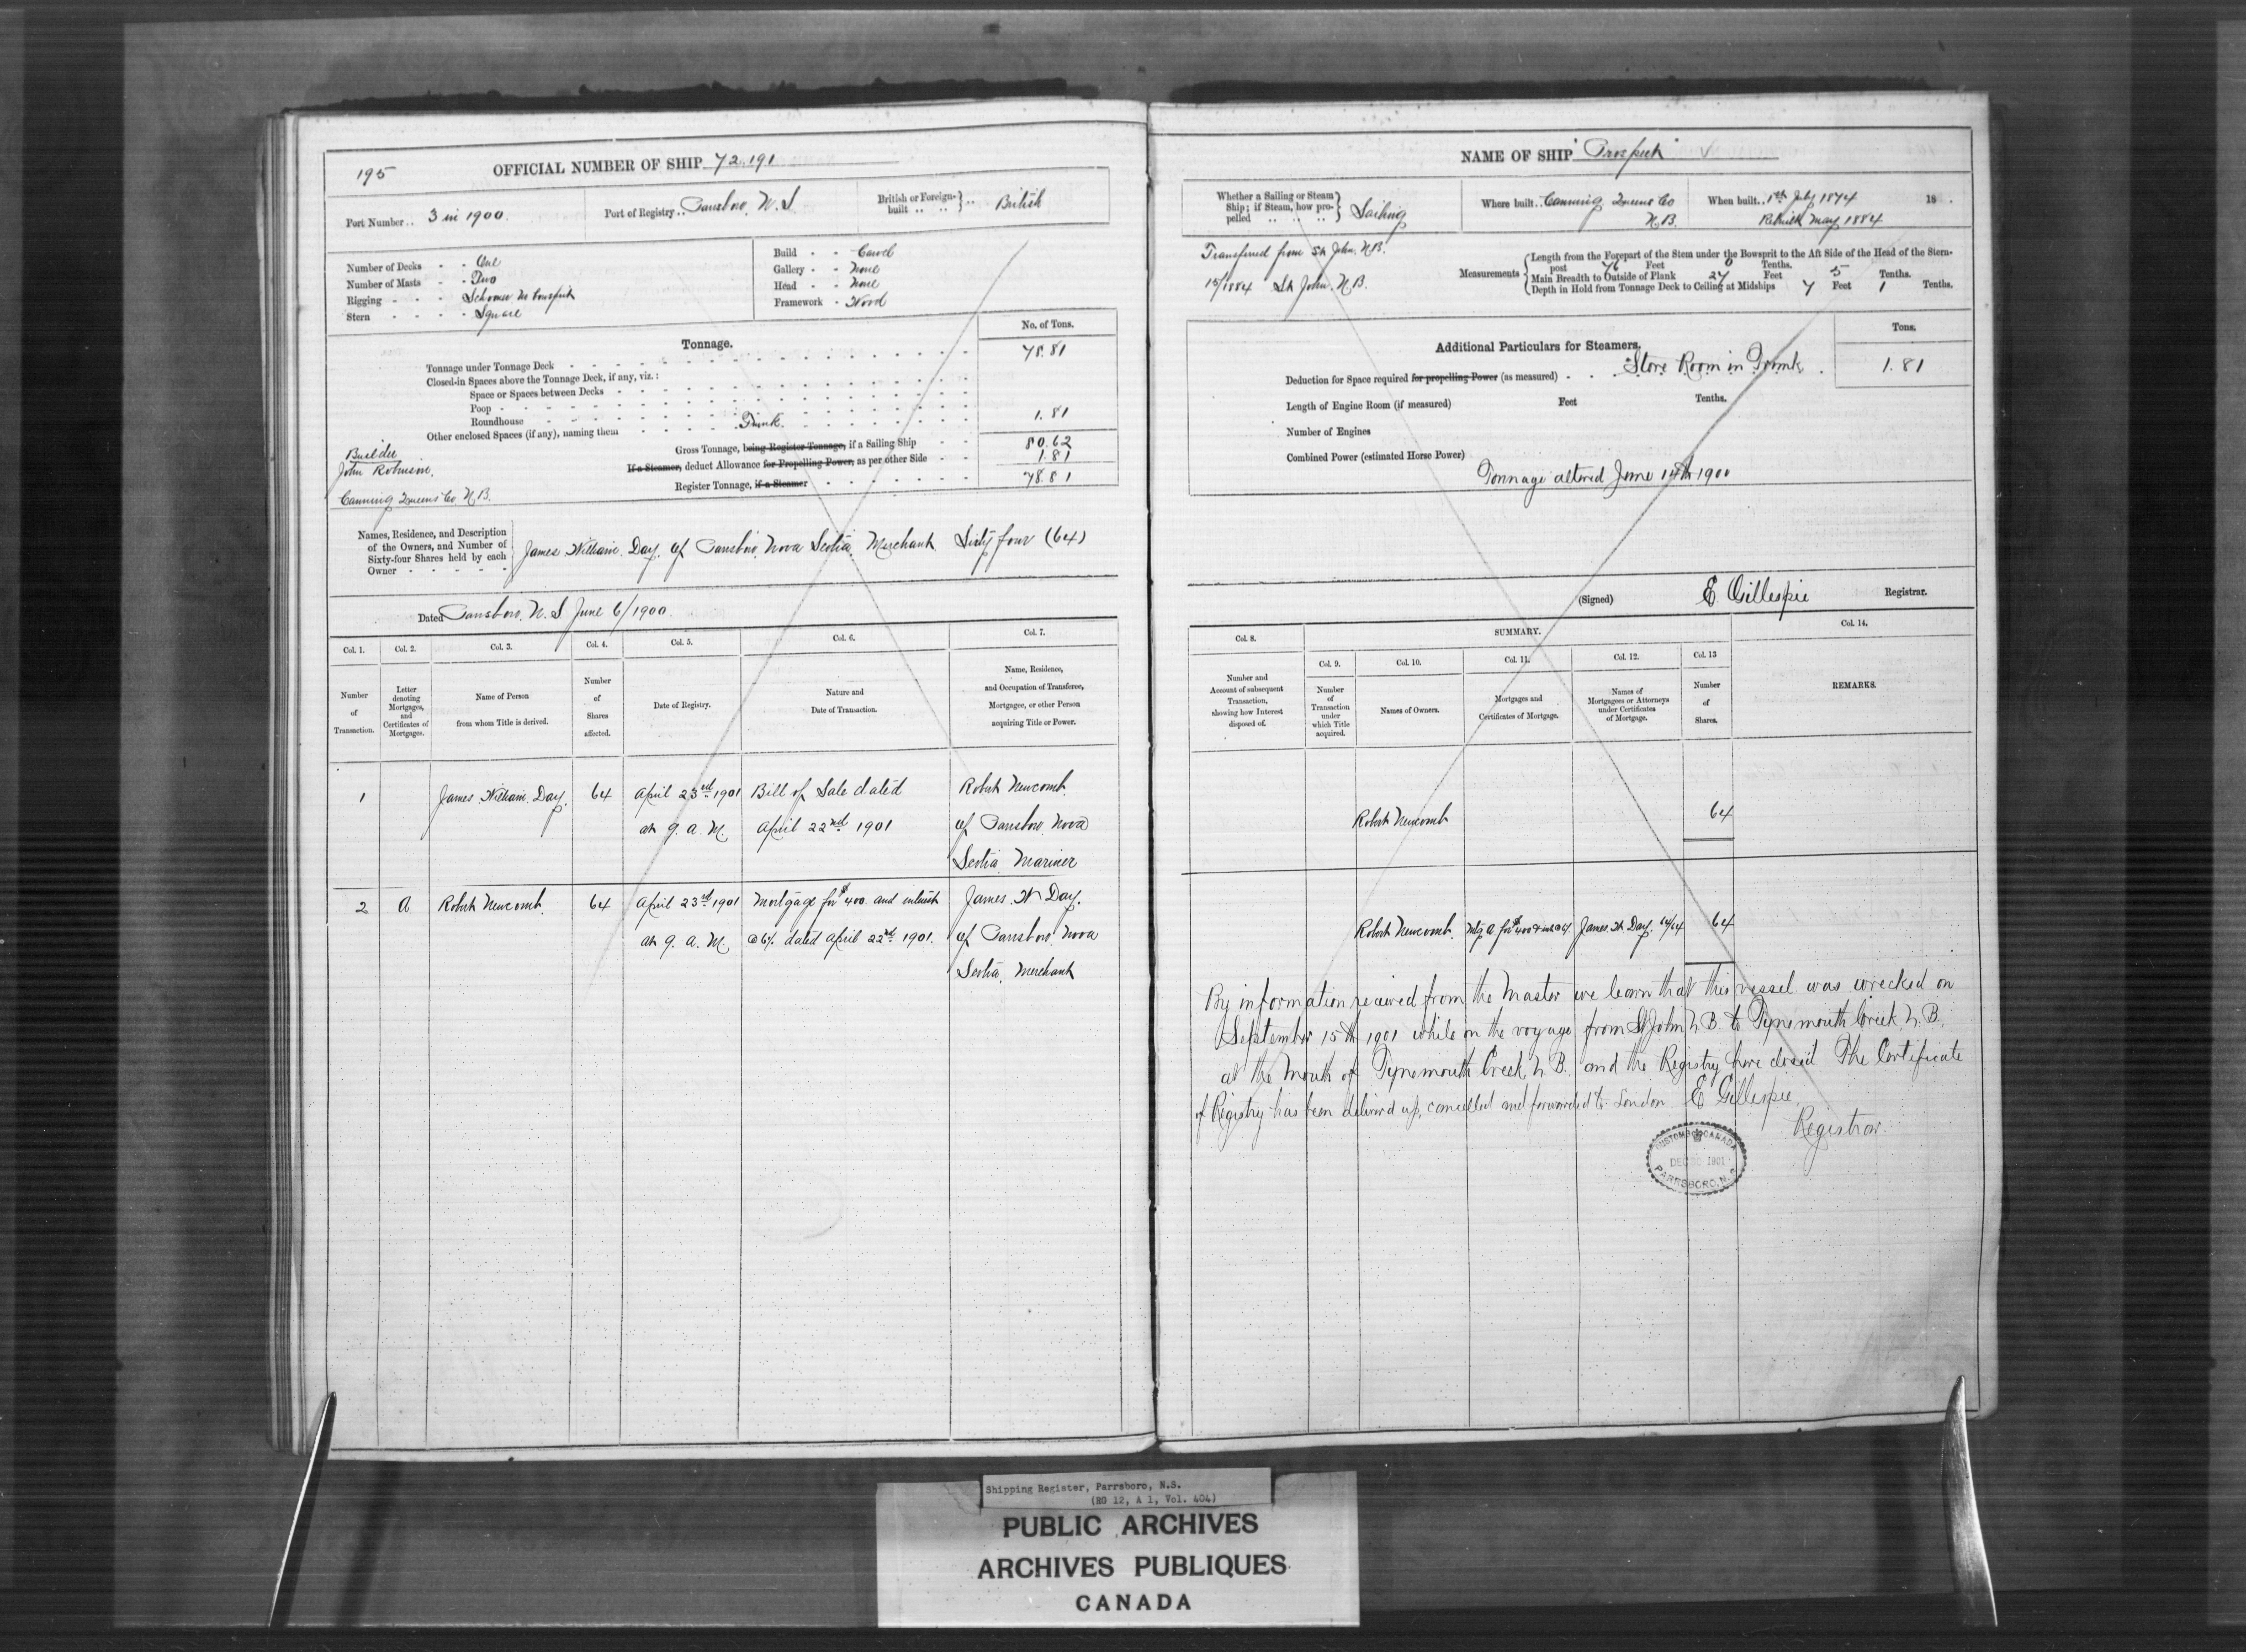 195
OFFICIAL NUMBER OF SHIP 72.191
Port Number .. 3 in 1900.
Port of Registry .. Parrsboro, N.S
British or Foreign-built .. .. British
Number of Decks - - One
Number of Masts - - Two
Rigging - - - Schooner
Stern - - - - Square
Build - - Carvel
Gallery - - None
Head - - None
Framework - Wood
Tonnage.
No. of Tons.
Tonnage under Tonnage Deck 78.81
Closed-in Spaces above the Tonnage Deck, if any, viz.:
Space or Spaces between Decks
Poop
Roundhouse
Other enclosed Spaces (if any), naming them Trunk 1.81
Gross Tonnage, being Register Tonnage, if a Sailing Ship 80.62
If a Steamer, deduct Allowance for Propelling Power, as per other Side 1.81
Register Tonnage, if a Steamer 78.81
Builder
John Robinson,
Canning Queens Co N.B.
Names, Residence, and Description
of the Owners, and Number of
Sixty-four Shares held by each
Owner
James William Day, of Parrsboro, Nova Scotia, Merchant Sixty four (64)
Dated Parrsboro, N.S June 6/1900.
Col. 1. Col. 2. Col. 3. Col. 4. Col. 5. Col. 6. Col. 7.
Number of Transaction.
Letter denoting Mortgages, and Certificates of Mortgages.
Name of Person from whom Title is derived.
Number of Shares affected.
Date of Registry.
Nature and Date of Transaction.
Name, Residence, and Occupation of Transferee, Mortgagee, or other Person acquiring Title or Power.
1 James William Day. 64 April 23rd 1901 Bill of Sale dated Robert Newcomb
at 9. a. M. April 22nd 1901 of Parrsboro, Nova
Scotia, Mariner
2 A Robert Newcomb. 64 April 23rd 1901 Mortgage for $400 and interest James W Day.
at 9. a. M. @ 6%. dated April 22nd 1901. of Parrsboro, Nova
Scotia, Merchant
NAME OF SHIP "Prospect"
Whether a Sailing or Steam
Ship; if Steam, how pro-
pelled .. .. .. Sailing
Where built .. Canning Queens Co
N.B.
When built .. 1st July 1874 18 .
Rebuilt May 1884
Transferred from St John. N.B.
15/1884 St John. N.B.
Measurements
Length from the Forepart of the Stem under the Bowsprit to the Aft Side of the Head of the Stern-
post 76 Feet 0 Tenths.
Main Breadth to Outside of Plank 24 Feet 5 Tenths.
Depth in Hold from Tonnage Deck to Ceiling at Midships 7 Feet 1 Tenths.
Additional Particulars for Steamers.
Tons.
Deduction for Space required for propelling Power (as measured) Store Room in Trunk 1.81
Length of Engine Room (if measured) Feet Tenths.
Number of Engines
Combined Power (estimated Horse Power)
Tonnage altered June 14th 1900
(Signed) E Gillespie Registrar.
Col. 8. SUMMARY. Col. 14.
Col. 9. Col. 10. Col. 11. Col. 12. Col. 13
Number and Account of subsequent Transaction, showing how Interest disposed of.
Number of Transaction under which Title acquired.
Names of Owners.
Mortgages and Certificates of Mortgage.
Names of Mortgagees or Attorneys under Certificates of Mortgage.
Number of Shares.
REMARKS.
Robert Newcomb 64
Robert Newcomb. Mtg A for $400 James W Day. 64/64 64
By information received from the Master we learn that this vessel was wrecked on
September 15th 1901 while on the voyage from St John N.B. to Tynemouth Creek N.B.
at the mouth of Tynemouth Creek N.B. and the Registry here closed The Certificate
of Registry has been delivered up, cancelled and forwarded to London E Gillespie,
Registrar.
CUSTOMS CANADA
DEC 1901
PARRSBORO, N.S.
Shipping Register, Parrsboro, N.S.
(RG 12, A 1, Vol. 404)
PUBLIC ARCHIVES
ARCHIVES PUBLIQUES
CANADA